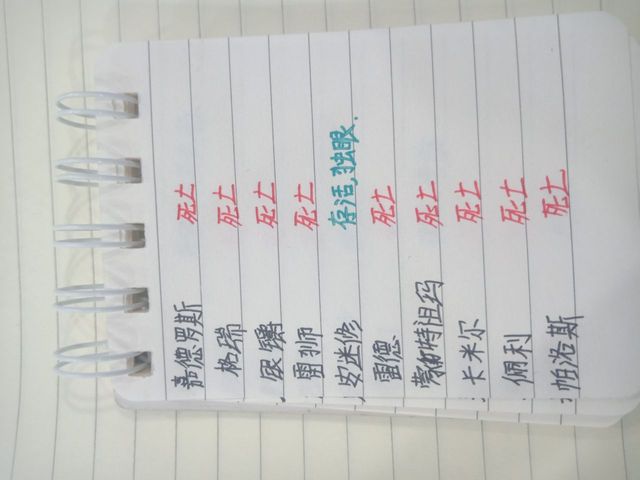 嘉德罗斯 死亡
格瑞 死亡
银爵 死亡
雷狮 死亡
安迷修 存活,独眼.
雷德 死亡
蒙特祖玛 死亡
卡米尔 死亡
佩利 死亡
帕洛斯 死亡